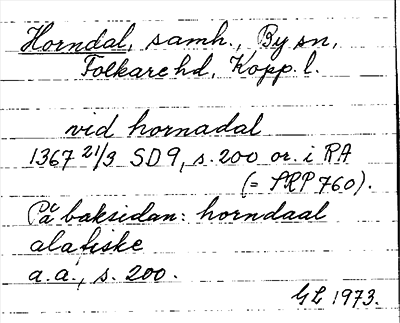 Horndal, samh., By sn,
Folkare hd, Kopp. l.
vid hornadal
1367 21/3 SD 9, s. 200 or. i RA
(= SRP 760).
På baksidan: horndaal
alafiske
a.a., s. 200.
GL 1973.